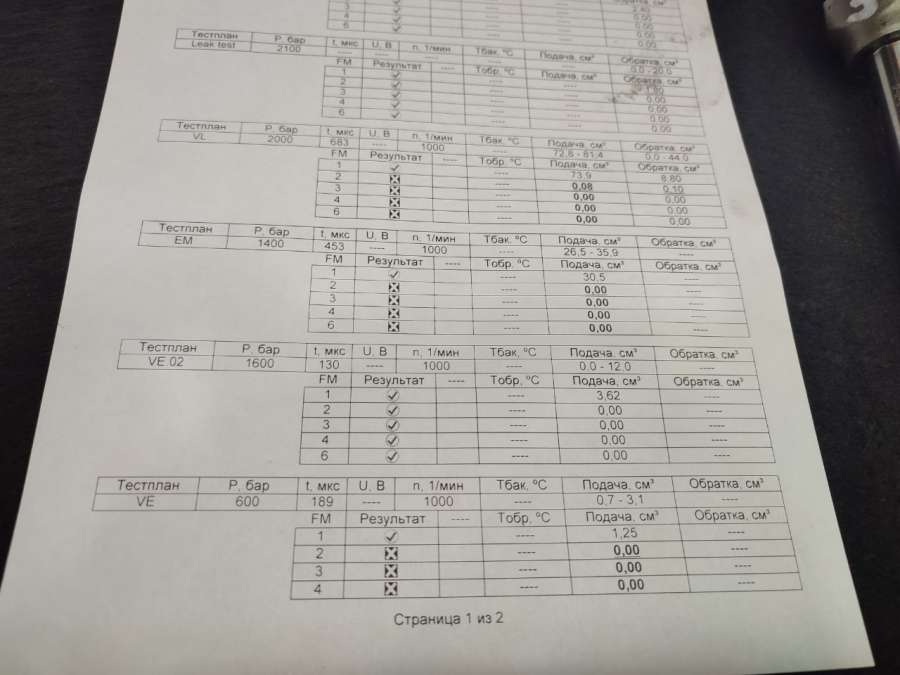 Обратка, см³
3 ---- 2,40
4 ---- 0,00
6 ---- 0,00
0,00
Тестплан P, бар t, мкс U, В n, 1/мин Тбак, ºC Подача, см³ Обратка, см³
Leak test 2100 ---- ---- ---- ---- ---- 0,0 - 20,0
FM Результат ---- Тобр, ºC Подача, см³ Обратка, см³
1 ---- ---- 1,80
2 ---- ---- 0,00
3 ---- ---- 0,00
4 ---- ---- 0,00
6 ---- ---- 0,00
Тестплан P, бар t, мкс U, В n, 1/мин Тбак, ºC Подача, см³ Обратка, см³
VL 2000 683 ---- 1000 ---- 72,8 - 81,4 0,0 - 44,0
FM Результат ---- Тобр, ºC Подача, см³ Обратка, см³
1 ---- 73,9 8,80
2 ---- 0,08 0,10
3 ---- 0,00 0,00
4 ---- 0,00 0,00
6 ---- 0,00 0,00
Тестплан P, бар t, мкс U, В n, 1/мин Тбак, ºC Подача, см³ Обратка, см³
EM 1400 453 ---- 1000 ---- 26,5 - 35,9 ----
FM Результат ---- Тобр, ºC Подача, см³ Обратка, см³
1 ---- 30,5 ----
2 ---- 0,00 ----
3 ---- 0,00 ----
4 ---- 0,00 ----
6 ---- 0,00 ----
Тестплан P, бар t, мкс U, В n, 1/мин Тбак, ºC Подача, см³ Обратка, см³
VE 02 1600 130 ---- 1000 ---- 0,0 - 12,0 ----
FM Результат ---- Тобр, ºC Подача, см³ Обратка, см³
1 ---- 3,62 ----
2 ---- 0,00 ----
3 ---- 0,00 ----
4 ---- 0,00 ----
6 ---- 0,00 ----
Тестплан P, бар t, мкс U, В n, 1/мин Тбак, ºC Подача, см³ Обратка, см³
VE 600 189 ---- 1000 ---- 0,7 - 3,1 ----
FM Результат ---- Тобр, ºC Подача, см³ Обратка, см³
1 ---- 1,25 ----
2 ---- 0,00 ----
3 ---- 0,00 ----
4 ---- 0,00 ----
Страница 1 из 2